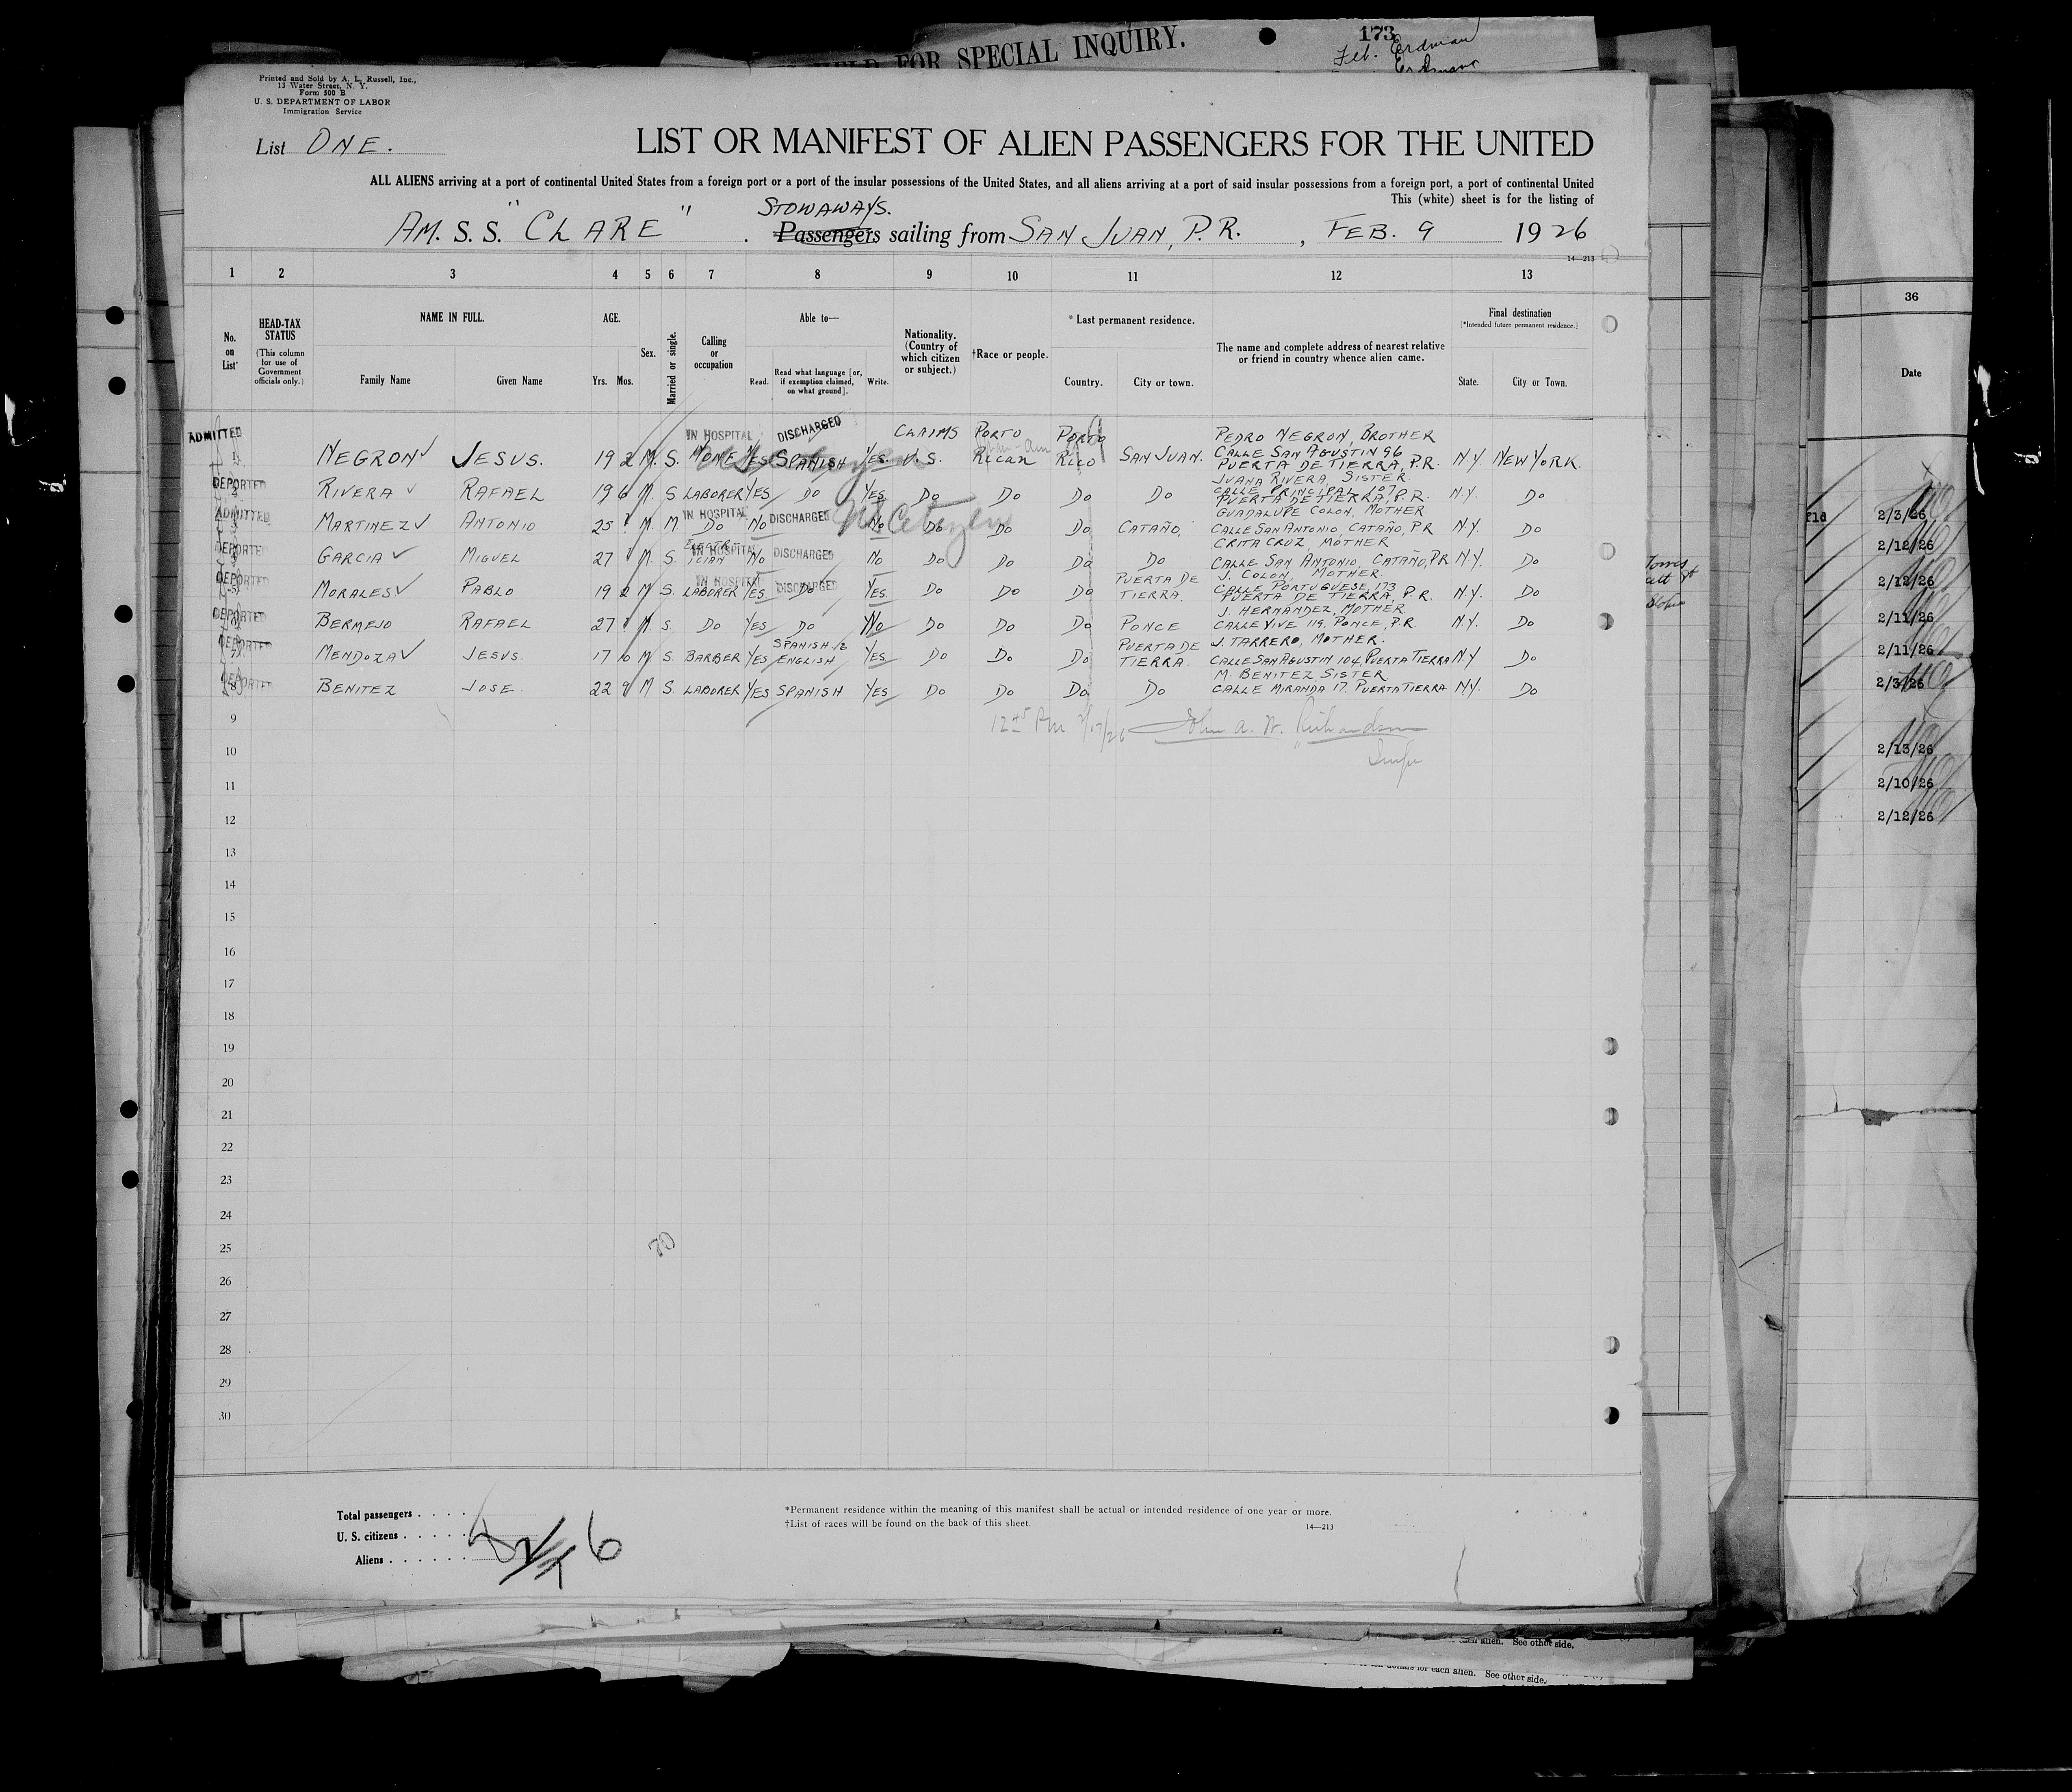 FOR SPECIAL INQUIRY.
173
Feb. Erdman
Printed and Sold by A. L. Russell, Inc.,
13 Water Street, N. Y.
Form 500 B
U. S. DEPARTMENT OF LABOR
Immigration Service
List ONE.
LIST OR MANIFEST OF ALIEN PASSENGERS FOR THE UNITED
ALL ALIENS arriving at a port of continental United States from a foreign port or a port of the insular possessions of the United States, and all aliens arriving at a port of said insular possessions from a foreign port, a port of continental United
This (white) sheet is for the listing of
STOWAWAYS.
AM. S. S. "CLARE". Passengers sailing from SAN JUAN, P.R., FEB. 9 1926
14—213
1 2 3 4 5 6 7 8 9 10 11 12 13
No. on List
HEAD-TAX STATUS
(This column for use of Government officials only.)
NAME IN FULL.
Family Name Given Name
AGE.
Yrs. Mos.
Sex.
Married or single.
Calling or occupation
Able to—
Read. Read what language [or, if exemption claimed, on what ground]. Write.
Nationality. (Country of which citizen or subject.)
†Race or people.
*Last permanent residence.
Country. City or town.
The name and complete address of nearest relative or friend in country whence alien came.
Final destination
(*Intended future permanent residence.)
State. City or Town.
ADMITTED IN HOSPITAL DISCHARGED CLAIMS PORTO PORTO PEDRO NEGRON, BROTHER
1 NEGRON JESUS. 19 2 M. S. NONE YES SPANISH YES. U.S. RICAN RICO SAN JUAN. CALLE SAN AGUSTIN 96 PUERTA DE TIERRA, P.R. NY NEW YORK.
DEPORTED JUANA RIVERA, SISTER
2 RIVERA RAFAEL 19 6 M. S LABORER YES DO YES DO DO DO DO CALLE PRINCIPAL 107 PUERTA DE TIERRA, P.R. N.Y. DO
ADMITTED IN HOSPITAL DISCHARGED GUADALUPE COLON, MOTHER
3 MARTINEZ ANTONIO 25 M. M DO NO NO DO DO DO CATAÑO, CALLE SAN ANTONIO, CATAÑO, P.R N.Y. DO
US Citizen
DEPORTED IN HOSPITAL DISCHARGED CRITA CRUZ, MOTHER
4 GARCIA MIGUEL 27 M. S. ELECTRICIAN NO NO DO DO DO DO CALLE SAN ANTONIO, CATAÑO, P.R N.Y. DO
DEPORTED IN HOSPITAL DISCHARGED J. COLON, MOTHER.
5 MORALES PABLO 19 2 M S. LABORER YES DO YES. DO DO DO PUERTA DE TIERRA. CALLE PORTUGUESE, 173 PUERTA DE TIERRA, P.R. N.Y. DO
DEPORTED J. HERNANDEZ, MOTHER
6 BERMEJO RAFAEL 27 M. S. DO YES DO NO DO DO DO PONCE CALLE VIVE 119, PONCE, P.R. N.Y. DO
DEPORTED J. TARRERO, MOTHER.
7 MENDOZA JESUS. 17 10 M. S. BARBER YES SPANISH & ENGLISH YES DO DO DO PUERTA DE TIERRA. CALLE SAN AGUSTIN 104, PUERTA TIERRA N.Y DO
DEPORTED M. BENITEZ SISTER
8 BENITEZ JOSE. 22 9 M S. LABORER YES SPANISH YES DO DO DO DO CALLE MIRANDA 17. PUERTA TIERRA N.Y. DO
9
12 45 PM 2/17/26 John A. W. Richardson
10
11
12
13
14
15
16
17
18
19
20
21
22
23
24
25
26
27
28
29
30
Total passengers
U. S. citizens
Aliens
6
*Permanent residence within the meaning of this manifest shall be actual or intended residence of one year or more.
†List of races will be found on the back of this sheet.
14—213
36
Date
2/3/26
2/12/26
2/12/26
2/11/26
2/11/26
2/3/26
2/13/26
2/10/26
2/12/26
alien. See other side.
for each alien. See other side.